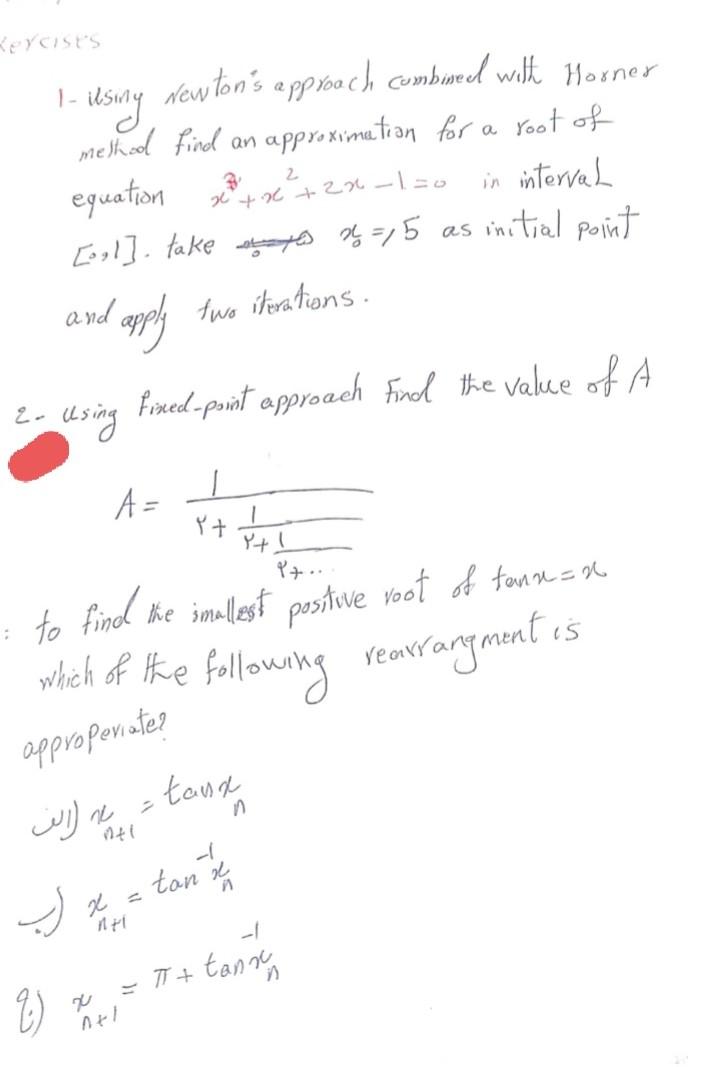 xercises
1- using Newton's approach combined with Horner
method find an approximation for a root of
equation x³ + x² + 2x - 1 = 0 in interval
[0,1]. take x₀ = ,5 as initial point
and apply two iterations.
2- using fixed-point approach find the value of A
A = 1
۲ + 1
۲ + 1
۲ + ...
: to find the smallest positive root of tanx = x
which of the following rearrangment is
approperiate?
الف) xₙ₊₁ = tan xₙ
ب) xₙ₊₁ = tan⁻¹ xₙ
ج) xₙ₊₁ = π + tan⁻¹ xₙ